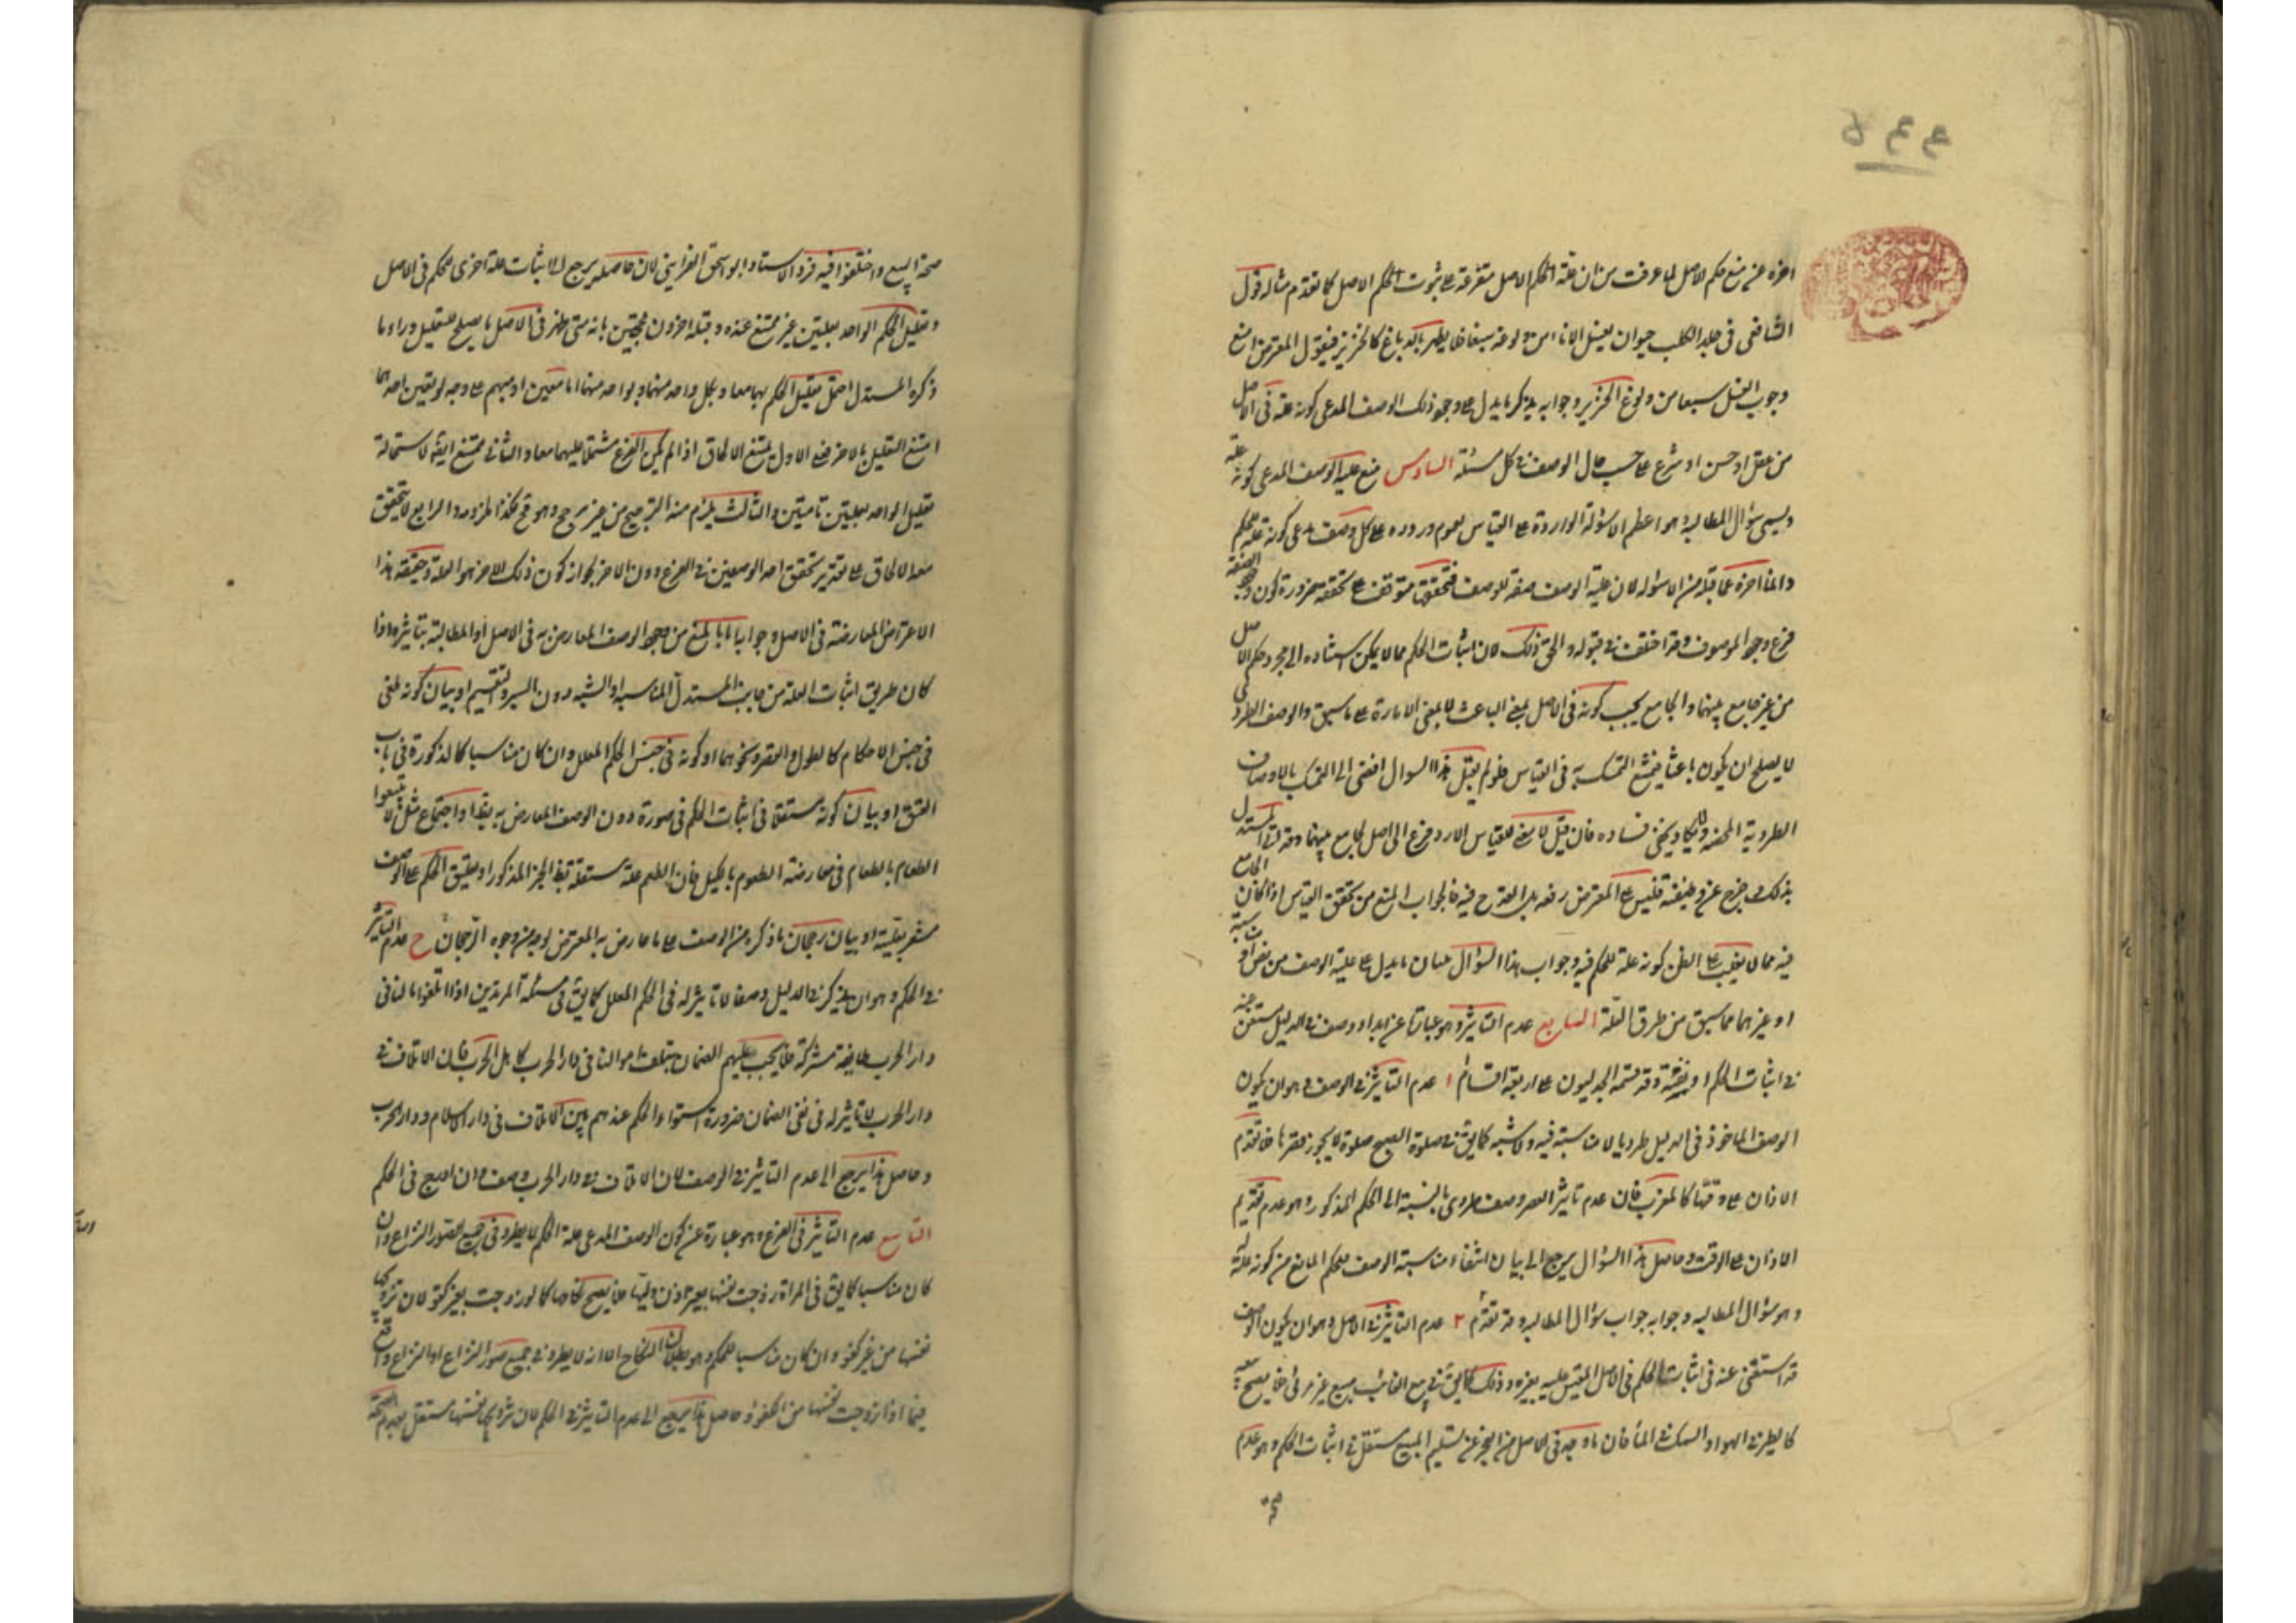 ٤٤٥
اخره عن منع حكم الاصل لما عرفت من ان علة الحكم الاصل متفرعة على ثبوت الحكم الاصل كما تقدم مثاله قول
الشافعى فى جلد الكلب حيوان يغسل الاناء من ولوغه سبعا فلا يطهر بالدباغ كالخنزير فيقول المعترض امنع
وجوب الغسل سبعا من ولوغ الخنزير وجوابه بذكر ما يدل على وجود ذلك الوصف المدعى كونه علة فى الاصل
من عقل او حسن او شرع على حسب حال الوصف فى كل مسئلة السادس منع علية الوصف المدعى كونه علة
ويسمى سؤال المطالبة وهو اعظم الاسؤلة الواردة على القياس لعموم وروده على كل وصف يدعى كونه علة للحكم
وانما اخره عما قبله من الاسؤله لان علية الوصف صفة للوصف فتحققه متوقف على تحققه ضرورة كون وجود الصفة
فرع وجود الموصوف وقد اختلف فى قبوله والحق ذلك لان اثبات الحكم مما لا يمكن استناده الى مجرد حكم الاصل
من غير جامع بينهما والجامع يجب كونه فى الاصل بمعنى الباعث لا بمعنى الامارة على ما سبق والوصف الطردى
لا يصلح ان يكون باعثا فيمتنع التمسك به فى القياس فلو لم يقبل هذا السوال افضى الى التمسك بالاوصاف
الطردية المحضه ولا يخفى فساده فان قيل لا معنى للقياس الا رد فرع الى اصل بجامع بينهما وقد اتى المستدل
بذلك وخرج عن وظيفته فليس على المعترض رفعه بل القدح فيه فالجواب المنع من تحقق القياس اذا كان الجامع
فيه مما لا يغلب على الظن كونه علة للحكم فيه وجواب هذا السؤال ببيان ما يدل على علية الوصف من نص او مناسبة
او غيرهما مما سبق من طرق العلة السابع عدم التاثير وهو عبارة عن ابداء وصف فى الدليل مستغن عنه
فى اثبات الحكم او نفيه وقد قسمه الجدليون على اربعة اقسام ١ عدم التاثير فى الوصف وهو ان يكون
الوصف الماخوذ فى الدليل طرديا لا مناسبة فيه ولا شبه كما يق فى صلوة الصبح صلوة لا يجوز قصرها فلا تقدم
الاذان على وقتها كالمغرب فان عدم تاثير القصر وصف طردى بالنسبة الى الحكم المذكور وهو عدم تقديم
الاذان على الوقت وحاصل هذا السؤال يرجع الى بيان انتفاء مناسبة الوصف للحكم المانع من كونه علة له
وهو سؤال المطالبه وجوابه جواب سؤال المطالبه وقد تقدم ٢ عدم التاثير فى الاصل وهو ان يكون الوصف
قد استغنى عنه فى اثبات الحكم فى الاصل المقيس عليه بغيره وذلك كما يق فى بيع الغائب مبيع غير مرئى فلا يصح بيعه
كالطير فى الهواء والسمك فى الماء فان ما وجد فى الاصل من العجز عن تسليم المبيع مستقل فى اثبات الحكم وهو عدم
صحة
صحة البيع واختلفوا فيه فرده الاستاد ابو اسحق الاسفراينى لان حاصله يرجع الى اثبات علة اخرى للحكم فى الاصل
وتعليل الحكم الواحد بعلتين غير ممتنع عنده وقبله اخرون محتجين بانه متى ظهر فى الاصل ما يصلح للتعليل وراء ما
ذكره المستدل احتمل تعليل الحكم بهما معا وبكل واحد منهما وبواحد منهما اما معين او مبهم على وجه لو تعين احدهما
امتنع التعليل بالاخر فعلى الاول يمتنع الالحاق اذا لم يكن الفرع مشتملا عليهما معا والثانى ممتنع ايضا لاستحالة
تعليل الواحد بعلتين تامتين والثالث يلزم منه الترجيح من غير مرجح وهو قبيح فكذا ملزومه والرابع لا يتحقق
معه الالحاق على تقدير تحقق احد الوصفين فى الفرع دون الاخر لجواز كون ذلك الاخر هو العلة وحقيقة هذا
الاعتراض المعارضة فى الاصل وجوابه اما بالمنع من وجود الوصف المعارض به فى الاصل او المطالبة بتاثيره اذا
كان طريق اثبات العلة من جانب المستدل المناسبة او الشبه دون السبر والتقسيم او بيان كونه ملغى
فى جنس الاحكام كالطول والقصر ونحوهما او كونه فى جنس الحكم المعلل وان كان مناسبا كالذكورة فى باب
العتق او بيان كونه مستقلا فى اثبات الحكم فى صورة دون الوصف المعارض به بنص او اجماع مثل لا تبيعوا
الطعام بالطعام فى معارضة المطعوم بالكيل فان الطعم علة مستقلة بنص الخبر المذكور او تعليق الحكم على الوصف
مشعر بعليته او بيان رجحان ما ذكره من الوصف على ما عارض به المعترض بوجه من وجوه الرجحان ح عدم التاثير
فى الحكم وهو ان يذكر فى الدليل وصفا لا تاثير له فى الحكم المعلل كما يق فى مسئلة المرتدين اذا اتلفوا مالنا فى
دار الحرب طايفة مشركة فلا يجب عليهم الضمان بتلف اموالنا فى دار الحرب كاهل الحرب فان الاتلاف فى
دار الحرب لا تاثير له فى نفى الضمان ضرورة استواء الحكم عندهم بين الاتلاف فى دار الاسلام ودار الحرب
وحاصل هذا يرجع الى عدم التاثير فى الوصف لان الاتلاف فى دار الحرب وصف وان ادرج فى الحكم
التاسع عدم التاثير فى الفرع وهو عبارة عن كون الوصف المدعى علة الحكم لا يطرد فى جميع الصور النزاع وان
كان مناسبا كما يق فى المراة زوجت نفسها بغير اذن وليها فلا يصح نكاحها كما لو زوجت بغير كفو لان تزويجها
نفسها من غير كفو وان كان مناسبا للحكم وهو بطلان النكاح الا انه لا يطرد فى جميع صور النزاع اذ النزاع واقع
فيما اذا زوجت نفسها من الكفو وحاصل هذا يرجع الى عدم التاثير فى الحكم لان تزويجها نفسها مستقل بعدم الصحة